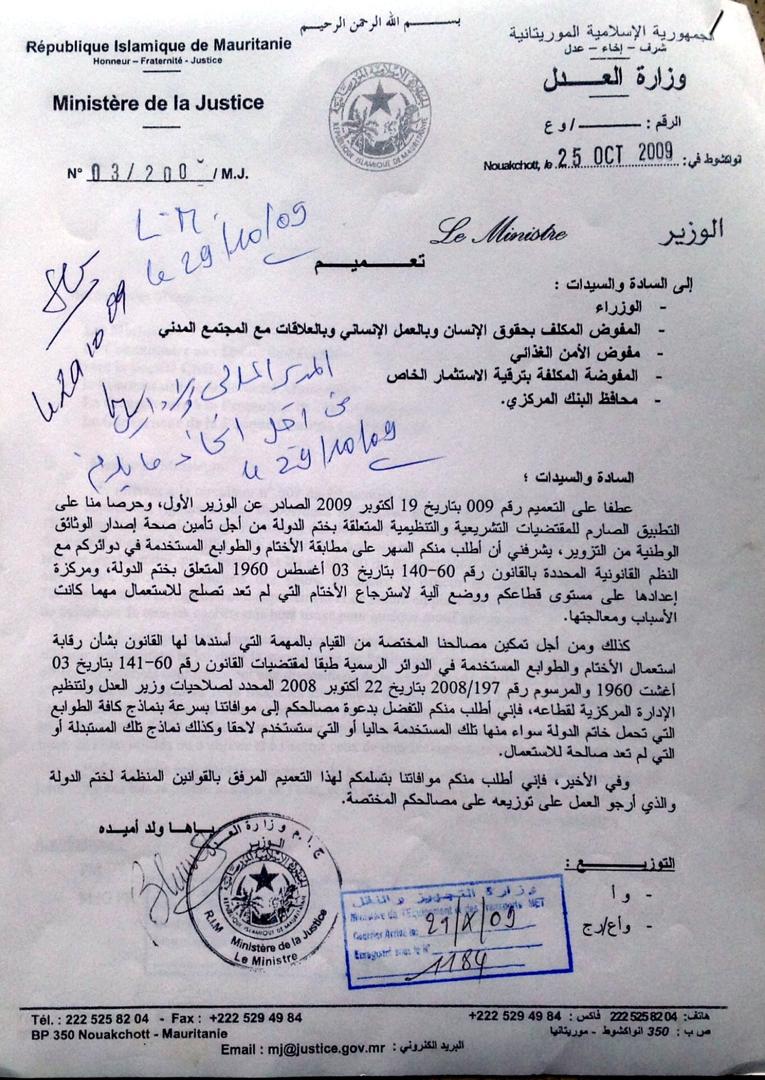 بســـم الله الرحمن الرحيم
République Islamique de Mauritanie
Honneur – Fraternité - Justice
Ministère de la Justice
N° 03/200 / M.J.
الجمهورية الإسلامية الموريتانية
شرف – إخاء – عدل
وزارة العـــدل
الرقم : ——— / و ع
Nouakchott, le 25 OCT 2009 نواكشوط في:
REPUBLIQUE ISLAMIQUE DE MAURITANIE
Le Ministre
الوزير
L-M.
le 29/10/09
le 29 10 09
تعـــميم
إلى السادة والسيدات :
- الوزراء
- المفوض المكلف بحقوق الإنسان وبالعمل الإنساني وبالعلاقات مع المجتمع المدني
- مفوض الأمن الغذائي
- المفوضة المكلفة بترقية الاستثمار الخاص
- محافظ البنك المركزي.
من أجل اتخاذ ما يلزم
le 29/10/09
السادة والسيدات ؛
عطفا على التعميم رقم 009 بتاريخ 19 أكتوبر 2009 الصادر عن الوزير الأول، وحرصا منا على
التطبيق الصارم للمقتضيات التشريعية والتنظيمية المتعلقة بختم الدولة من أجل تأمين صحة إصدار الوثائق
الوطنية من التزوير، يشرفني أن أطلب منكم السهر على مطابقة الأختام والطوابع المستخدمة في دوائركم مع
النظم القانونية المحددة بالقانون رقم 60-140 بتاريخ 03 أغسطس 1960 المتعلق بختم الدولة، ومركزة
إعدادها على مستوى قطاعكم ووضع آلية لاسترجاع الأختام التي لم تعد تصلح للاستعمال مهما كانت
الأسباب ومعالجتها.
كذلك ومن أجل تمكين مصالحنا المختصة من القيام بالمهمة التي أسندها لها القانون بشأن رقابة
استعمال الأختام والطوابع المستخدمة في الدوائر الرسمية طبقا لمقتضيات القانون رقم 60-141 بتاريخ 03
أغشت 1960 والمرسوم رقم 2008/197 بتاريخ 22 أكتوبر 2008 المحدد لصلاحيات وزير العدل ولتنظيم
الإدارة المركزية لقطاعه، فإني أطلب منكم التفضل بدعوة مصالحكم إلى موافاتنا بسرعة بنماذج كافة الطوابع
التي تحمل خاتم الدولة سواء منها تلك المستخدمة حاليا أو التي ستستخدم لاحقا وكذلك نماذج تلك المستبدلة أو
التي لم تعد صالحة للاستعمال.
وفي الأخير، فإني أطلب منكم موافاتنا بتسلمكم لهذا التعميم المرفق بالقوانين المنظمة لختم الدولة
والذي أرجو العمل على توزيعه على مصالحكم المختصة.
باها ولد أميده
ج . إ . م وزارة العدل
الوزير
REPUBLIQUE ISLAMIQUE DE MAURITANIE
R.I.M Ministère de la Justice
Le Ministre
التوزيـــع :
- و ا
- و/ع/رج
وزارة التجهيز والنقل
Ministère de l'Equipement et des Transports MET
Courrier Arrivé le: 29/X/09
Enregistré sous le N°
1184
Tél. : 222 525 82 04 - Fax : +222 529 49 84
BP 350 Nouakchott - Mauritanie
هاتف: 222 525 82 04 فاكس : +222 529 49 84
ص ب : 350 انواكشوط - موريتانيا
Email : mj@justice.gov.mr : البريد الكتروني